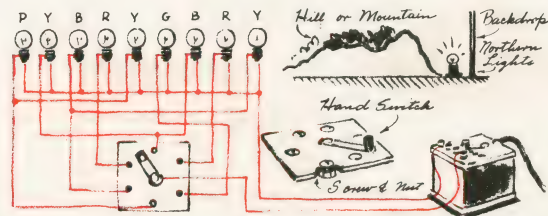 P Y B R Y G B R Y
Hill or Mountain
Backdrop
Northern
Lights
Hand Switch
Screw & Nut